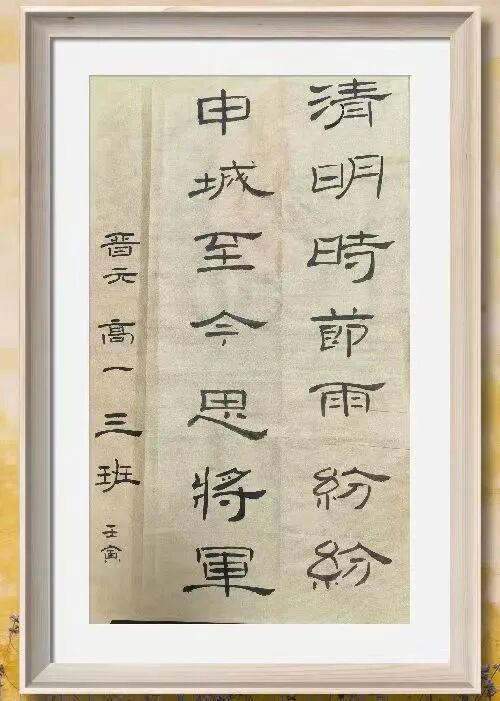 清明時節雨紛紛
申城至今思將軍
晋元高一三班壬寅